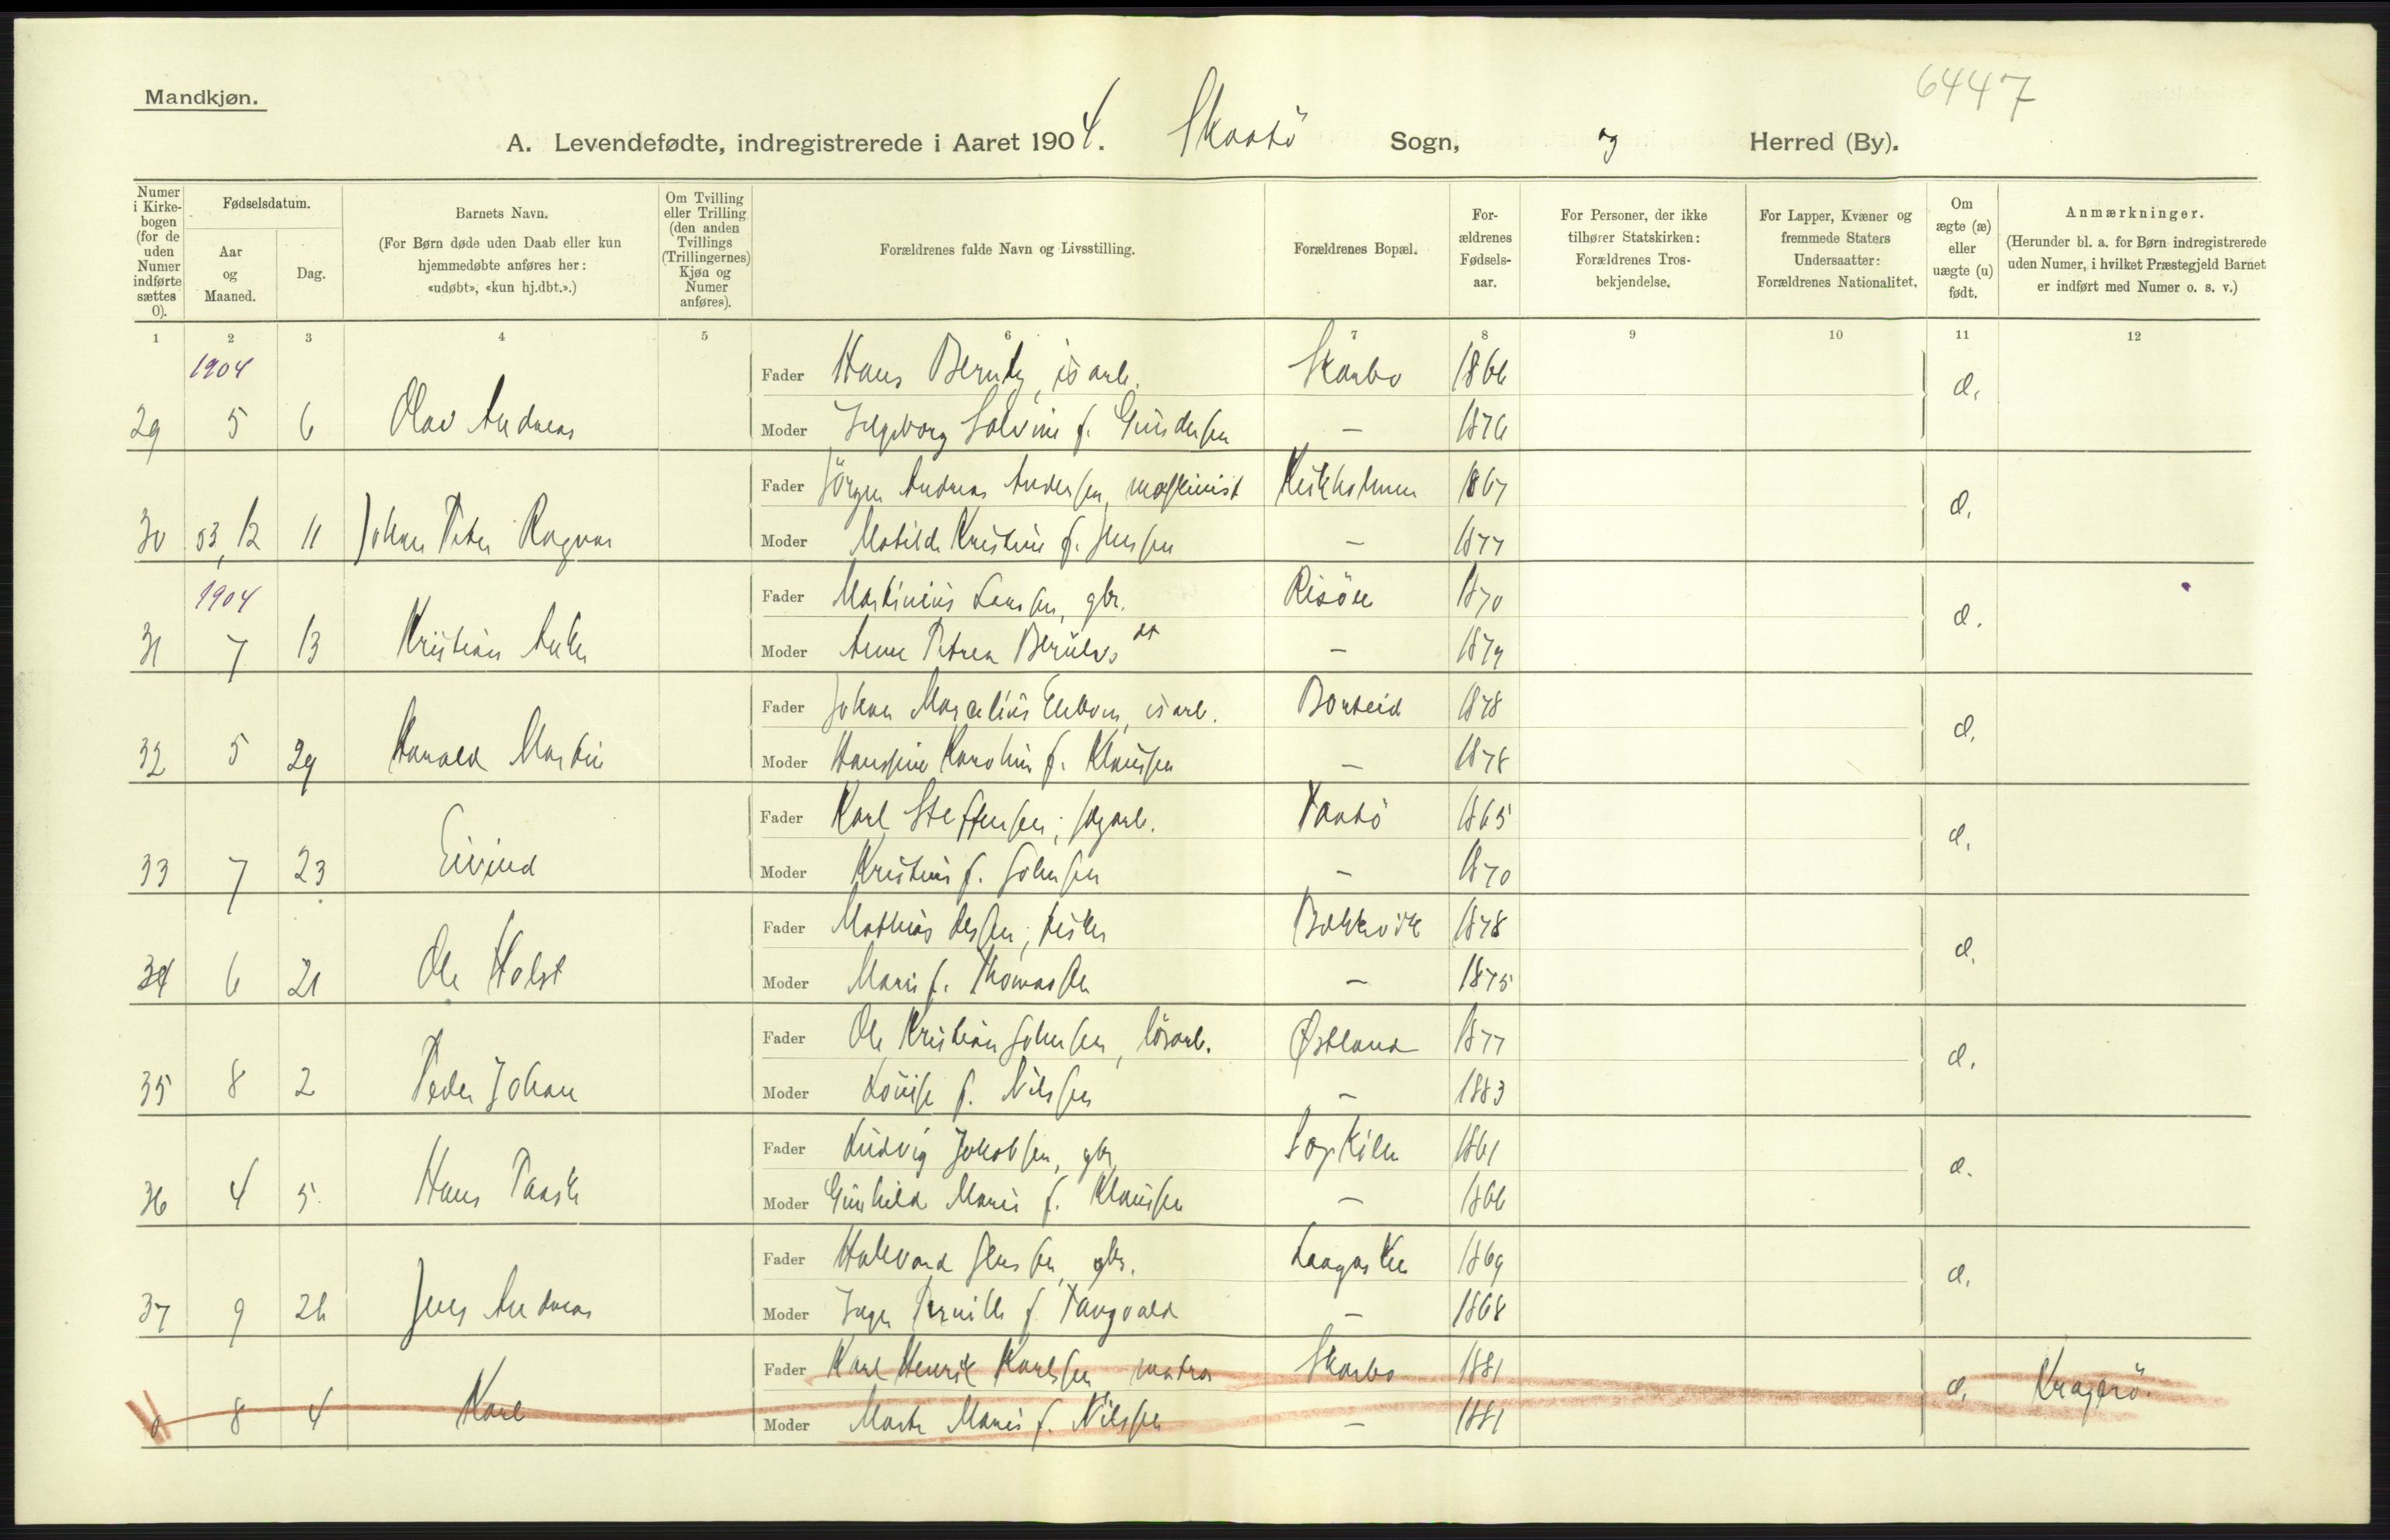 6447
Mandkjøn.
A. Levendefødte, indregistrerede i Aaret 1904. Skaatö Sogn, og Herred (By).
Numer i Kirkebogen (for de uden Numer indførte sættes 0).
Fødselsdatum.
Aar og Maaned.
Dag.
Barnets Navn.
(For Børn døde uden Daab eller kun hjemmedøbte anføres her: «udøbt», «kun hj.dbt.».)
Om Tvilling eller Trilling (den anden Tvillings (Trillingernes) Kjøn og Numer anføres).
Forældrenes fulde Navn og Livsstilling.
Forældrenes Bopæl.
Forældrenes Fødselsaar.
For Personer, der ikke tilhører Statskirken: Forældrenes Trosbekjendelse.
For Lapper, Kvæner og fremmede Staters Undersaatter: Forældrenes Nationalitet.
Om ægte (æ) eller uægte (u) født.
Anmærkninger.
(Herunder bl. a. for Børn indregistrerede uden Numer, i hvilket Præstegjeld Barnet er indført med Numer o. s. v.)
1 2 3 4 5 6 7 8 9 10 11 12
1904
Fader Hans isarb. 1866 æ.
29 5 6 Olav Andreas Moder Ingeborg f. Gundersen — 1876
Fader Jörgen Andreas Andersen, maskinist Kirkholmen 1867 æ.
30 03, 12 11 Johan Peter Ragnvar Moder Matilde Kristine f. Jensen — 1877
1904
Fader Martinius Larsen, gbr. Risöen 1870 æ.
31 7 13 Kristian Moder Anne Petrea — 1879
Fader Johan Marcelius isarb. Borteid 1878 æ.
32 5 29 Harald Martin Moder Hansine Karoline f. Klausen — 1878
Fader Karl Steffensen, sagarb. Taatö 1865 æ.
33 7 23 Eivind Moder Kristine f. Johnsen — 1870
Fader Mathias fisker Bekkevik 1878 æ.
34 6 21 Ole Holst Moder Marie f. Thomassen — 1875
Fader Ole Kristian Johnsen, lösarb. Østland 1877 æ.
35 8 2 Peder Johan Moder Louise f. Nilsen — 1883
Fader Ludvig Jakobsen, gbr. 1861 æ.
36 4 5 Hans Paaske Moder Gunhild Marie f. Klausen — 1866
Fader Halvord Jensen, gbr. 1869 æ.
37 9 26 Jens Andreas Moder Inger Pernille f. Tangvald — 1868
Fader Karl Henrik Karlsen matros 1881 æ. Kragerö.
0 8 4 Karl Moder Marte Marie f. Nilsen — 1881